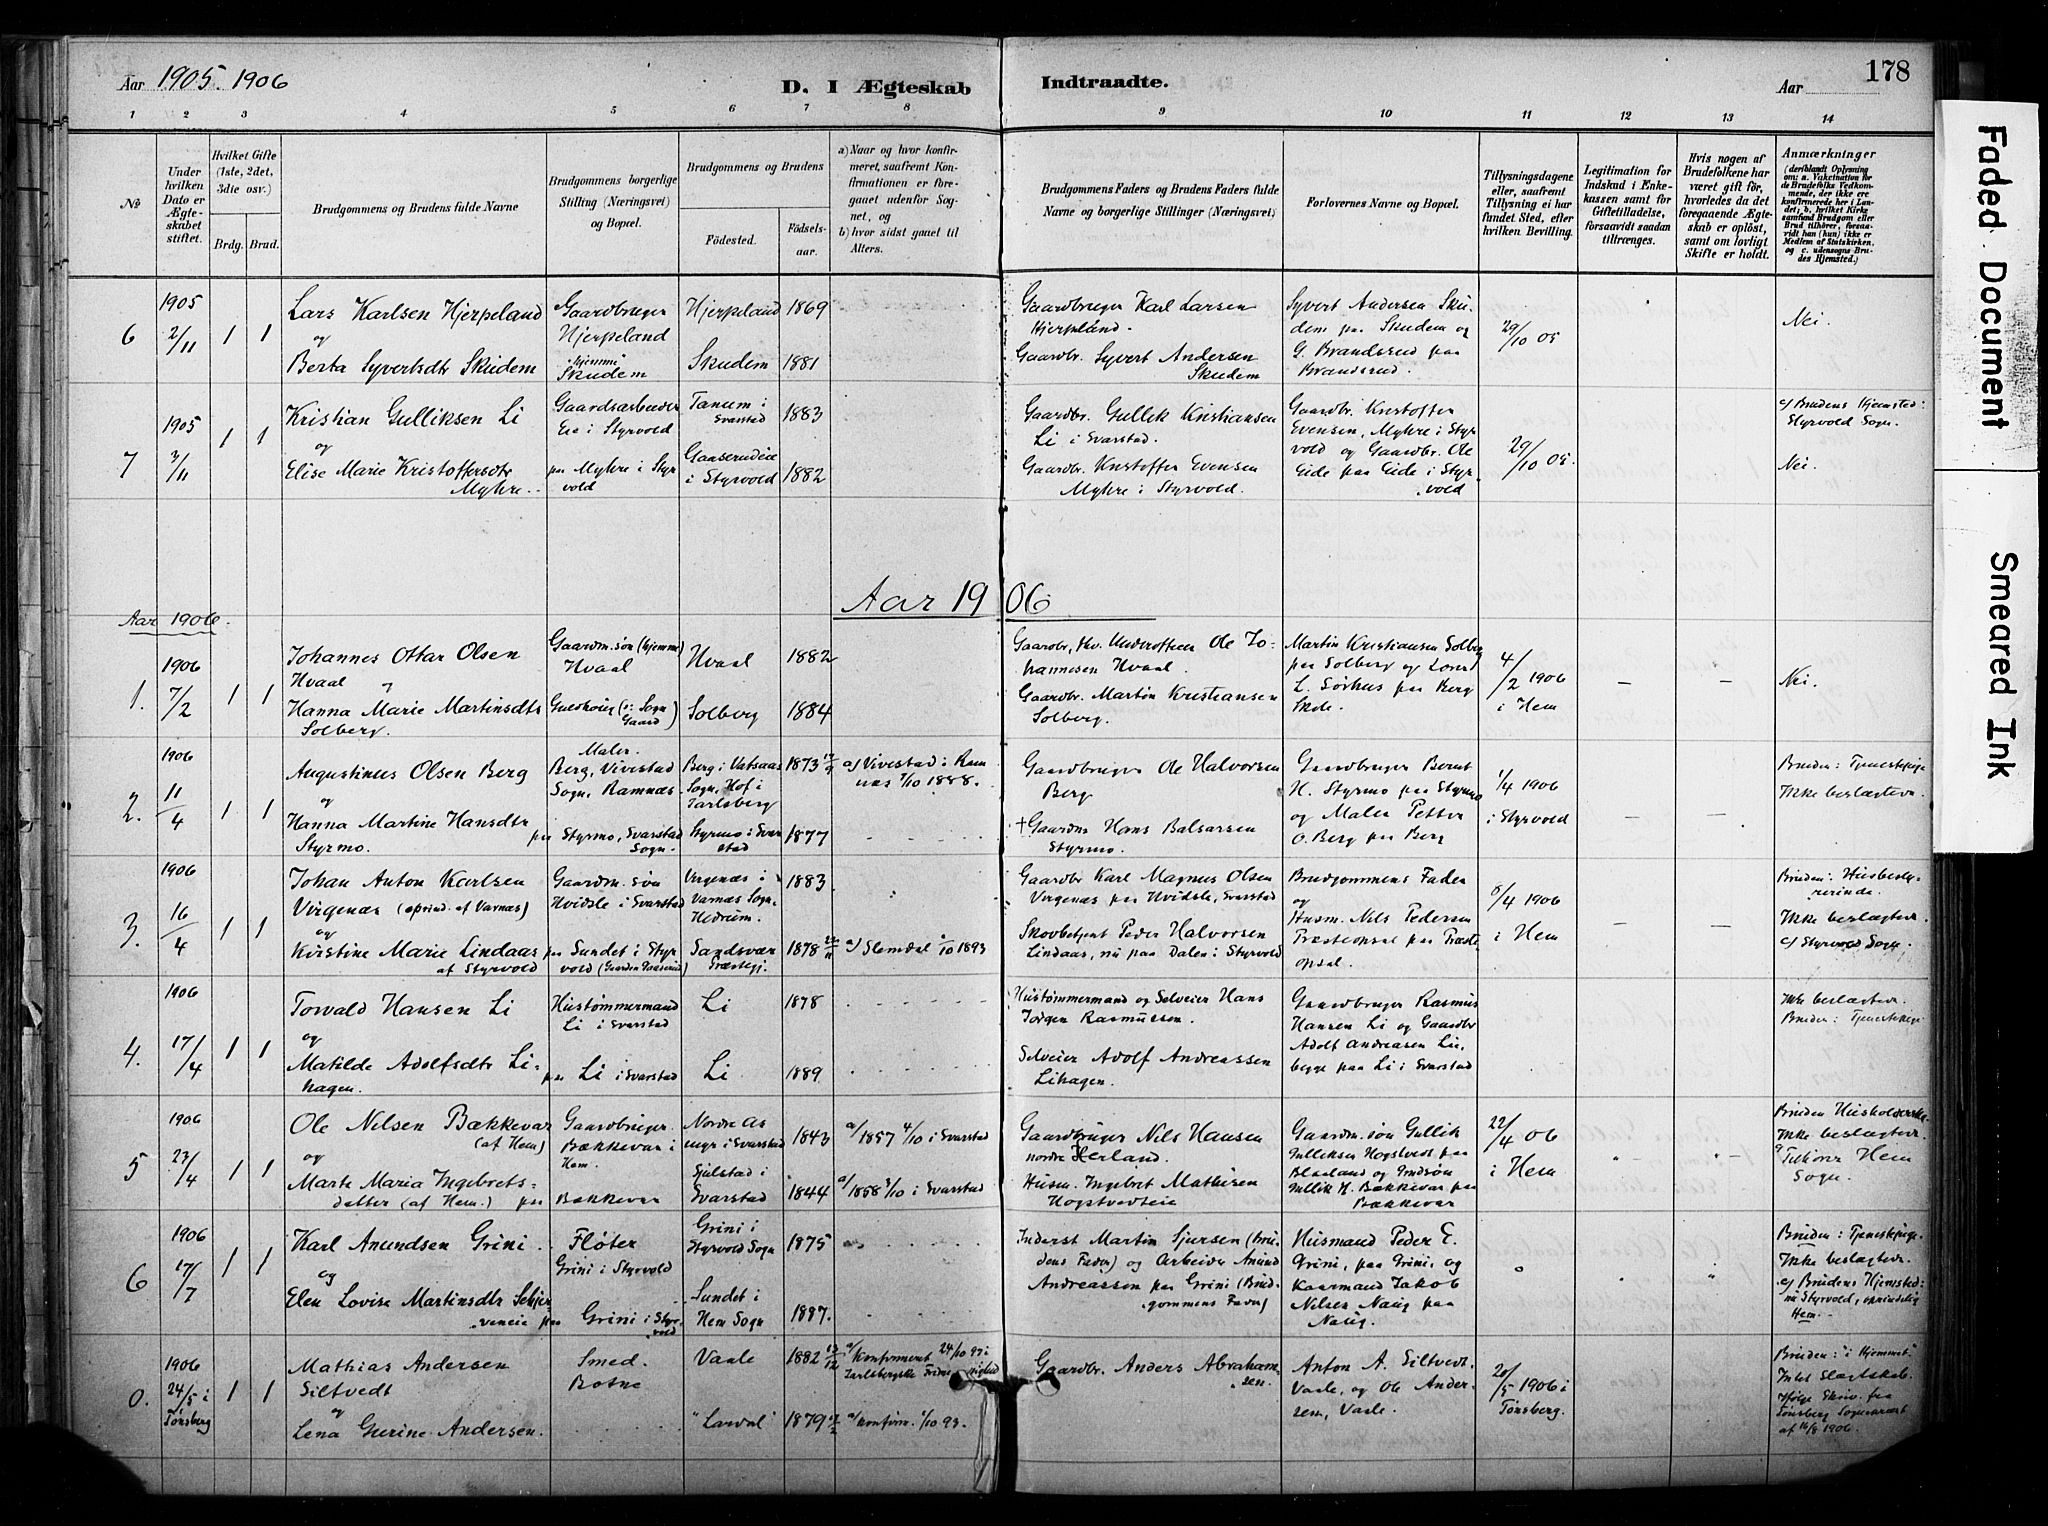 Aar 1905. 1906
D. I Ægteskab Indtraadte.
Aar
178
1 2 3 4 5 6 7 8 9 10 11 12 13 14
No
Under hvilken Dato er Ægteskabet stiftet.
Hvilket Gifte (1ste, 2det, 3die osv.)
Brdg. Brud.
Brudgommens og Brudens fulde Navne
Brudgommens borgerlige Stilling (Næringsvei) og Bopæl.
Brudgommens og Brudens
Fødested.
Fødselsaar.
a) Naar og hvor konfirmeret, saafremt Konfirmationen er foregaaet udenfor Sognet, og
b) hvor sidst gaaet til Alters.
Brudgommens Faders og Brudens Faders fulde Navne og borgerlige Stillinger (Næringsvei)
Forlovernes Navne og Bopæl.
Tillysningsdagene eller, saafremt Tillysning ei har fundet Sted, efter hvilken Bevilling.
Legitimation for Indskud i Enkekassen samt for Giftetilladelse, forsaavidt saadan tiltrænges.
Hvis nogen af Brudefolkene har været gift før, hvorledes da det foregaaende Ægteskab er opløst, samt om lovligt Skifte er holdt.
Anmærkninger (deriblandt Oplysning om: a. Vakcination for de Brudefolks Vedkommende, der ikke ere konfirmerede her i Landet; b. hvilket Kirkesamfund Brudgom eller Brud tilhører, forsaavidt han (hun) ikke er Medlem af Statskirken, og c. udensogns Brudes Hjemsted.)
6 1905 2/11 1 1
Lars Karlsen Hjerpeland
og
Berta Syvertsdtr Skudem
Gaardbruger
Hjerpeland
hjemme
Skudem
Hjerpeland 1869
Skudem 1881
Gaardbruger Karl Larsen
Hjerpland.
Gaardbr. Syvert Andersen
Skudem
Syvert Andersen Sku-
dem paa Skudem og
G. Brandsrud paa
Brandsrud.
29/10 05
Nei.
7 1905 3/11 1 1
Kristian Gulliksen Li
og
Elise Marie Kristoffersdtr
Myhre.
Gaardsarbeider
Eie i Styrvold
paa Myhre i Styr
vold
Tanum i
Svarstad 1883
i Styrvold 1882
Gaardbr. Gullik Kristiansen
Li i Svarstad.
Gaardbr. Kristoffer Evensen
Myhre i Styrvold.
Gaardbr. Kristoffer
Evensen, Myhre i Styr
vold og Gaardbr. Ole
Eide paa Eide i Styr
vold
29/10 05.
c/ Brudens Hjemsted:
Styrvold Sogn.
Nei.
Aar 1906
Aar 1906.
1. 1906 7/2 1 1
Johannes Ottar Olsen
Hvaal
og
Hanna Marie Martinsdtr
Solberg.
Gaardm. søn (hjemme)
Hvaal
Hvaal 1882
Solberg 1884
Gaardbr, fhv. Underofficer Ole Jo-
hannesen Hvaal.
Gaardbr. Martin Kristiansen
Solberg.
Martin Kristiansen Solberg
paa Solberg og
L. Sørhus paa Berg
Skole.
4/2 1906
i Hem
Nei.
2. 1906 11/4 1 1
Augustinus Olsen Berg
og
Hanna Martine Hansdtr
Styrmo.
Maler.
Berg, Vivestad
Sogn, Ramnæs
paa Styrmo, Svarstad
Sogn
Berg i Vatsaas
Sogn, Hof i
Jarlsberg 1873
Styrmo i Svar
stad 1877
a/ Vivestad i Ram
næs 7/10 1888.
Gaardbruger Ole Halvorsen
Berg
+ Gaardm Hans Balsarsen
Styrmo.
Gaardbruger Bernt
H. Styrmo paa Styrmo
og Maler Petter
O. Berg paa Berg
1/4 1906
i Styrvold
Bruden: Tjenestepige
Ikke beslægtede.
3. 1906 16/4 1 1
Johan Anton Karlsen
Virgenæs (oprind. af Varnæs)
og
Kirstine Marie Lindaas
af Styrvold
Gaardm. søn
Hvidsle i Svarstad
paa Sundet i Styr
vold
Virgenæs i
Varnæs Sogn,
Hedrum. 1883
Sandsvær
Præstegj. 1878
a/ Slemdal 1893
Gaardbr Karl Magnus Olsen
Virgenæs paa Hvidsle, Svarstad
Skovbetjent Peder Halvorsen
Lindaas, nu paa Dalen i Styrvold
Brudgommens Fader
og
Husm. Nils Pedersen
Præsteopsal paa Præste
opsal.
8/4 1906
i Hem
Ikke beslægtede.
c/ Styrvold Sogn.
4. 1906 17/4 1 1
Torvald Hansen Li
og
Matilde Adolfsdtr Li-
hagen.
Hustømmermand
Li i Svarstad
paa Li i Svarstad
Li 1878
Li 1889
Hustømmermand og Selveier Hans
Jørgen Rasmussen.
Selveier Adolf Andreassen
Lihagen.
Gaardbruger Rasmus
Hansen Li og Gaardbr
Adolf Andreasen Li,
begge paa Li i Svarstad
Ikke beslægtede.
Bruden: Tjenestepige
5 1906 23/4 1 1
Ole Nilsen Bækkevar
(af Hem)
og
Marte Maria Ingebrets-
datter (af Hem.)
Gaardbruger
Bækkevar i
Hem.
paa Bækkevar
Nordre As
myr i Svarstad 1843
Gjulstad i
Svarstad 1844
a/ 1857 4/10 i Svarstad
a/ 1858 3/10 i Svarstad
Gaardbruger Nils Hansen
nordre Herland.
Husm. Ingebret Mathisen
Hogstvedteie
Gaardm. søn Gullik
Gulliksen Hogstvedt paa
Blaaland og Gmdsøn
Gullik H. Bækkevar paa
Bækkevar
22/4 06
i Hem
Ikke beslægtede.
Tilhører Hem
Sogn.
6 1906 17/7 1 1
Karl Anundsen Grini
og
Elen Lovise Martinsdtr Sehjer-
veneie paa
Fløter
Grini i Styrvold
Grini i Styr
vold
Grini i
Styrvold Sogn 1875
Sundet i
Hem Sogn 1887.
Inderst Martin Sjursen (Bru-
dens Fader) og Arbeider Anund
Andreassen paa Grini (Brud-
gommens Fader)
Husmand Peder E.
Grini, paa Grini, og
Kaarmand Jakob
Nilsen Nasig paa
Nasig.
Bruden: Tjenestepige.
Ikke beslægtede.
c/ Brudens Hjemsted:
nu Styrvold, oprindelig
Hem.
0. 1906 24/5 i Tønsberg 1 1
Mathias Andersen
Siltvedt
og
Lena Gurine Andersen.
Smed.
Botne
Vaale 1882 13/12
"Larvik" 1879
a/ Konfirmeret 24/10 97 i
Jarlsbergske Frimenighed
a/ Konfirm. 1/10 93.
Gaardbr. Anders Abraham-
sen.
Anton A. Siltvedt.
Vaale, og Ole Ander-
sen, Vaale.
20/5 1906 i
Tønsberg.
Bruden: "i Hjemmet"
Intet Slægtskab.
Ifølge Skriv. fra
Tønsberg Sogneprest
af 16/8 1906.
Faded Document
Smeared Ink